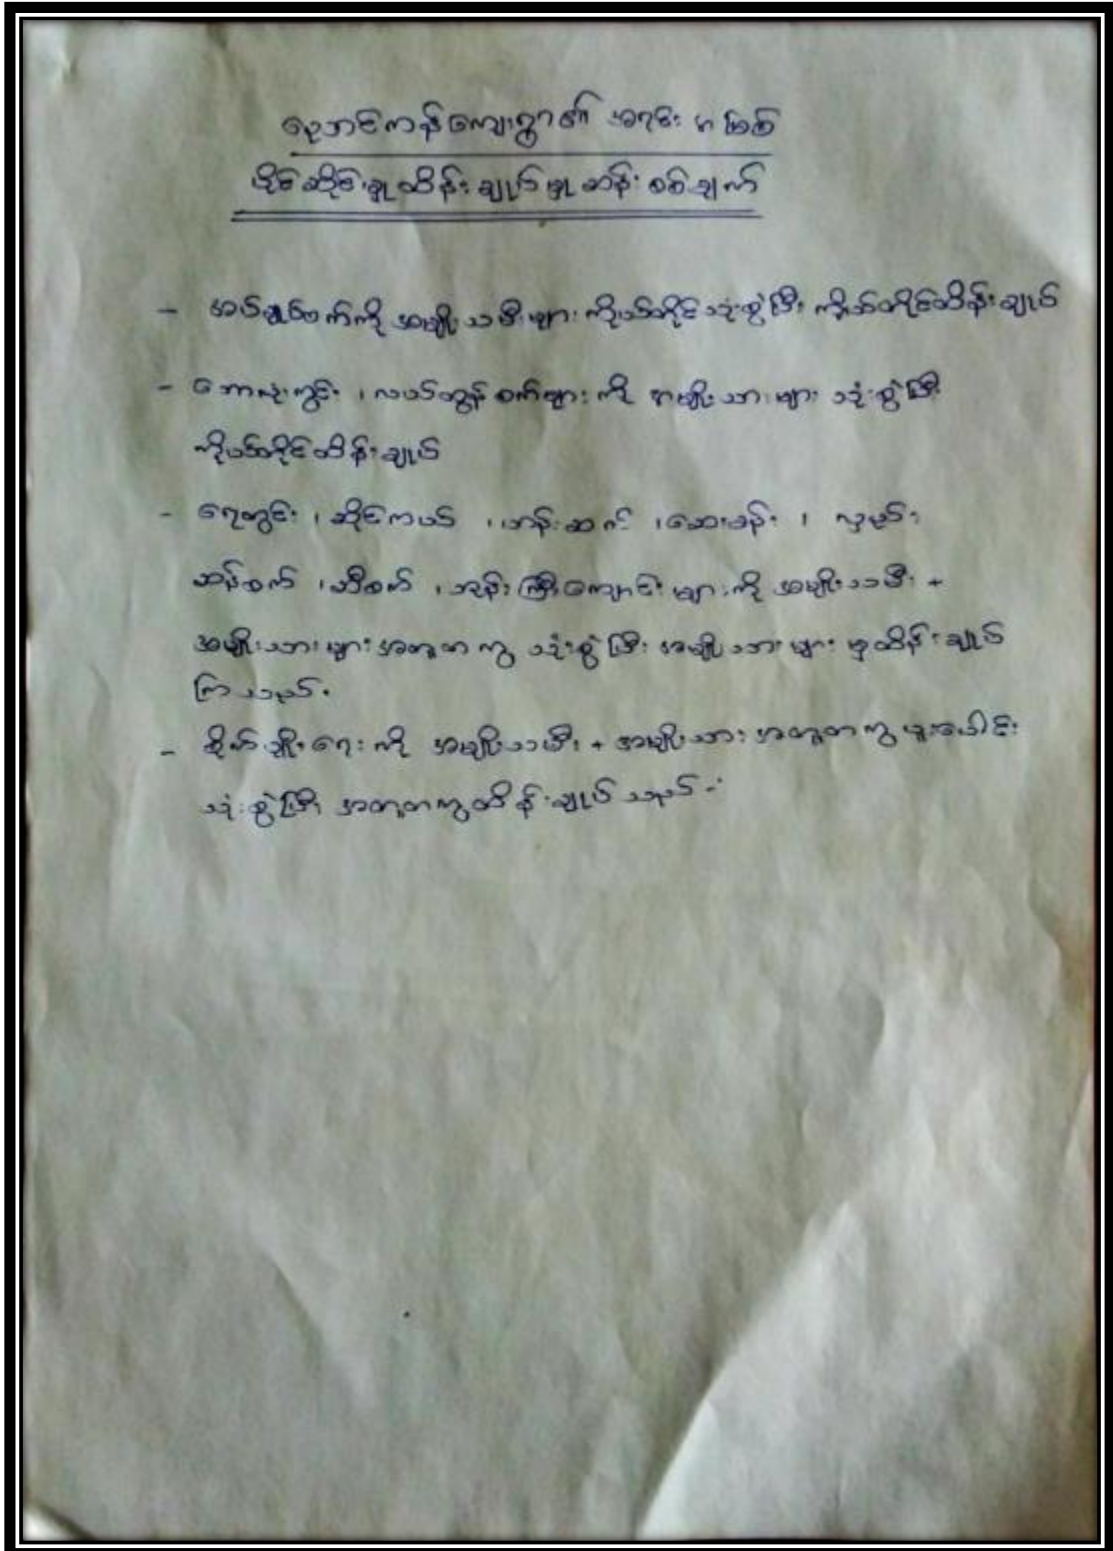 ညောင်ကန်ကျေးရွာ၏ အရင်းအမြစ်
ပိုင်ဆိုင်မှုထိန်းချုပ်မှုဆန်းစစ်ချက်
- အပ်ချုပ်စက်ကို အမျိုးသမီးများ ကိုယ်တိုင်သုံးစွဲပြီး ကိုယ်တိုင်ထိန်းချုပ်
- ဘောလုံးကွင်း ၊ လယ်ထွန်စက်များ ကို အမျိုးသားများ သုံးစွဲပြီး
ကိုယ်တိုင်ထိန်းချုပ်
- ရေတွင်း ၊ ဆိုင်ကယ် ၊ ၊ဆေးခန်း ၊ လှည်း
ဆန်စက် ၊ ဆီစက် ၊ ဘုန်းကြီးကျောင်း များကို အမျိုးသမီး +
အမျိုးသားများအတူတကွ သုံးစွဲပြီး အမျိုးသားများ မှထိန်းချုပ်
ကြသည်။
- စိုက်ပျိုးရေး ကို အမျိုးသမီး + အမျိုးသား အတူတကွပူးပေါင်း
သုံးစွဲပြီး အတူတကွထိန်းချုပ်သည်။